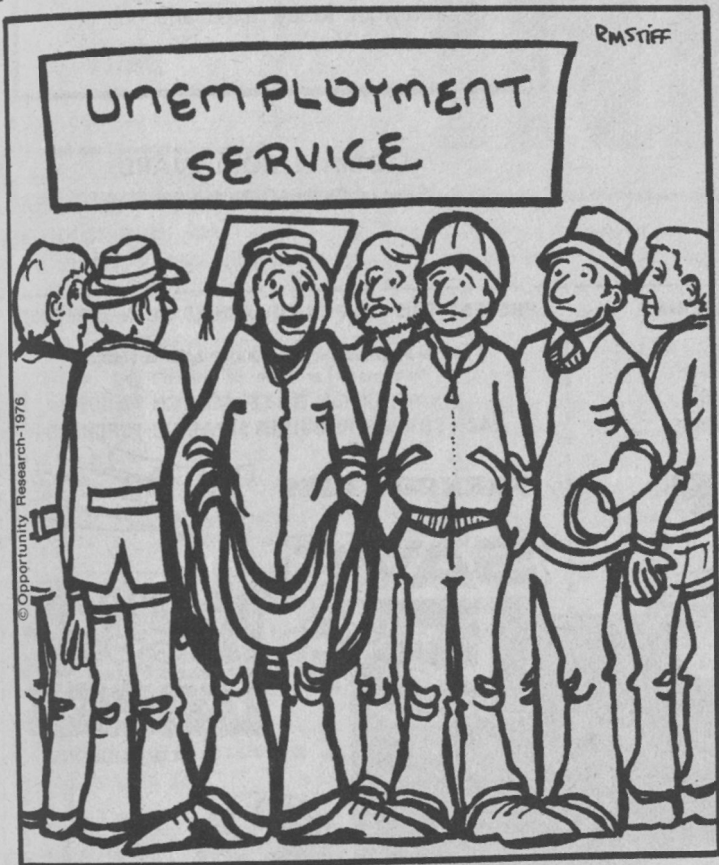 RMSTIFF
UNEMPLOYMENT
SERVICE
© Opportunity Research-1976